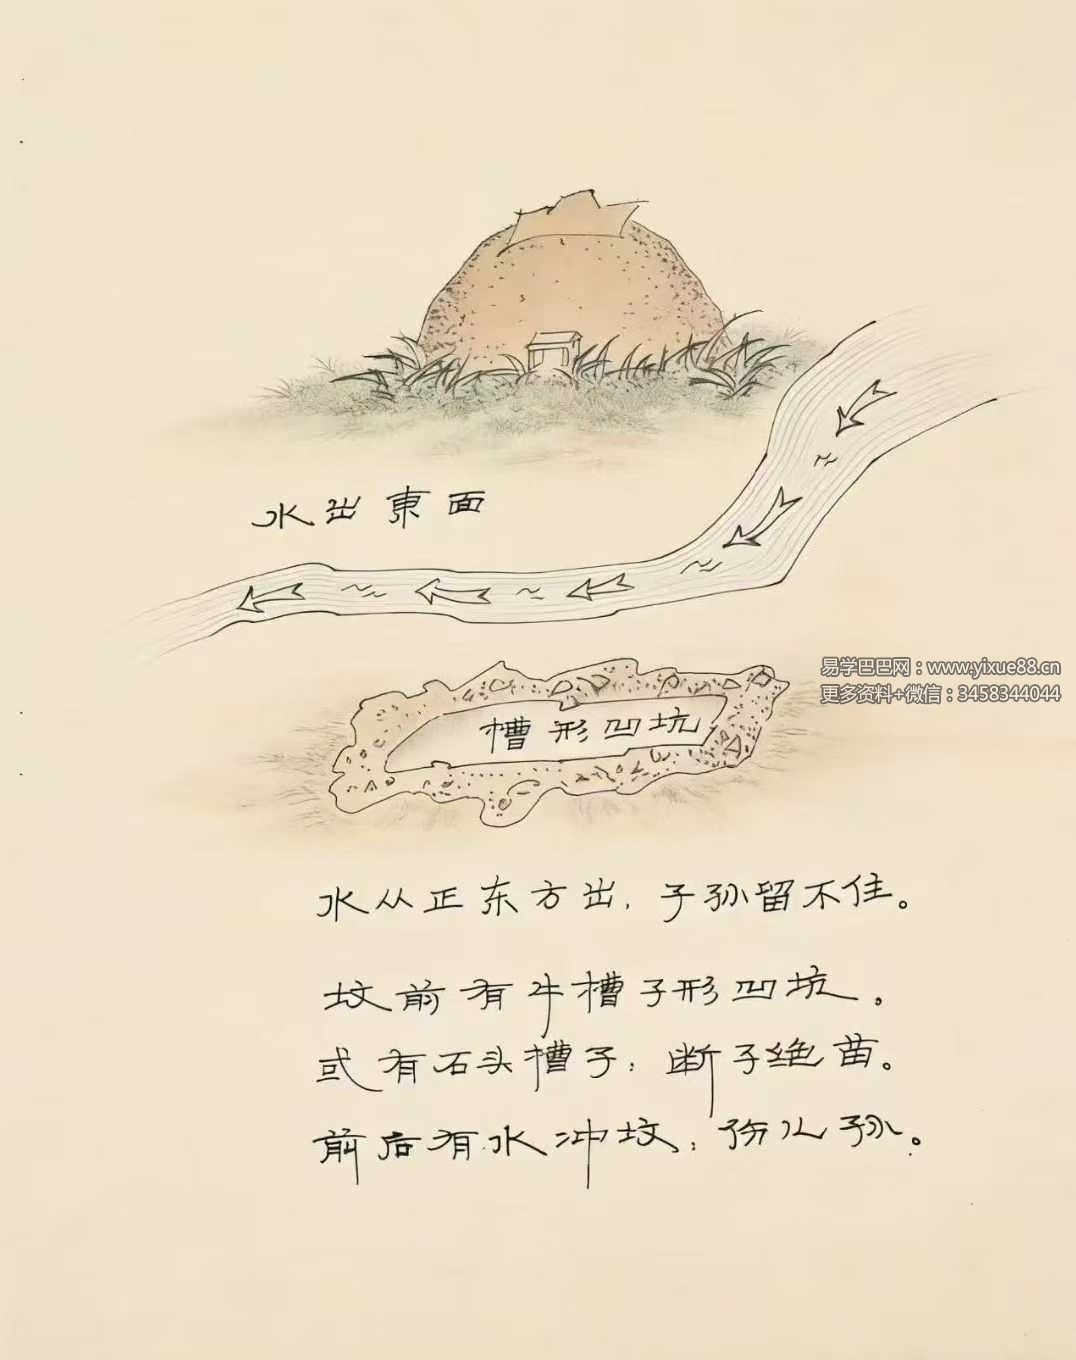 水出東面
易学巴巴网：www.yixue88.cn
更多资料+微信：3458344044
槽形凹坑
水从正东方出，子孙留不住。
坟前有牛槽子形凹坑。
或有石头槽子；断子绝苗。
前后有水冲坟；伤儿孙。